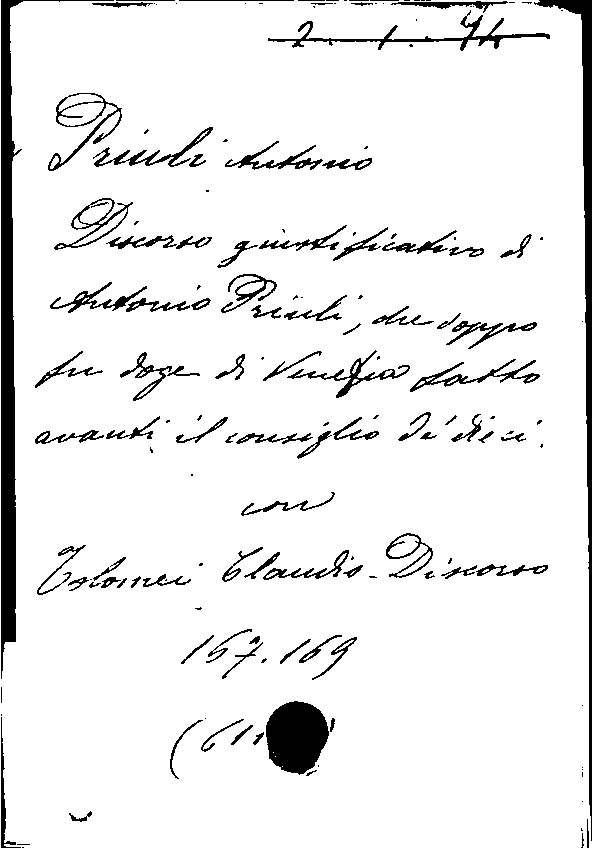 2. 1. 74
Priuli Antonio
Discorso giustificativo di
Antonio Priuli, che doppo
fu doge di Venezia fatto
avanti il consiglio de' dieci.
con
Tolomei Claudio - Discorso
167. 169
(611